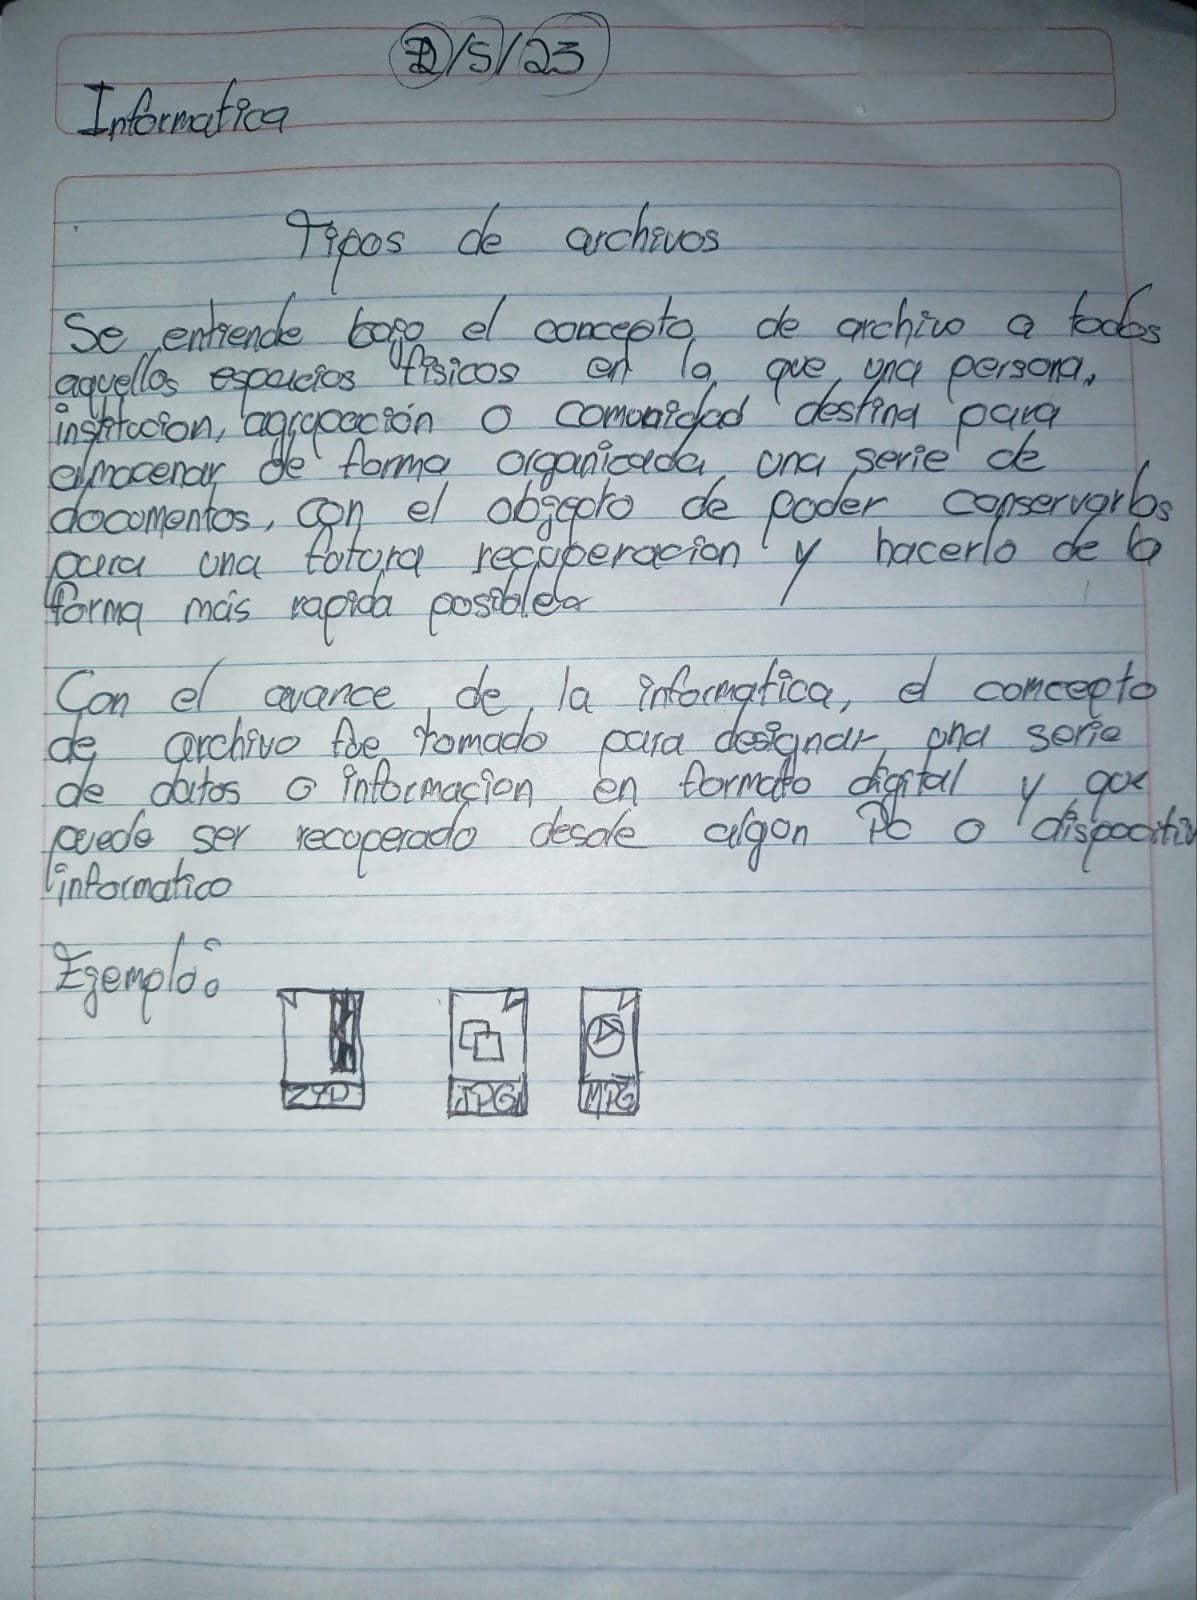 /5/23
Informatica
Tipos de archivos
Se entiende bajo el concepto de archivo a todos
aquellos espacios fisicos en la que una persona,
institucion, agrupación o comunidad destina para
almacenar de forma organicada una serie de
documentos, con el objecto de poder conservarlos
para una futura recuperacion y hacerlo de la
forma más rapida posible
Con el avance de la informatica, el concepto
de archivo fue tomado para designar una serie
de datos o informacion en formato digital y que
puede ser recuperado desde algun PC o dispocitiv
informatico
Ejemplo:
ZIP JPG MPG